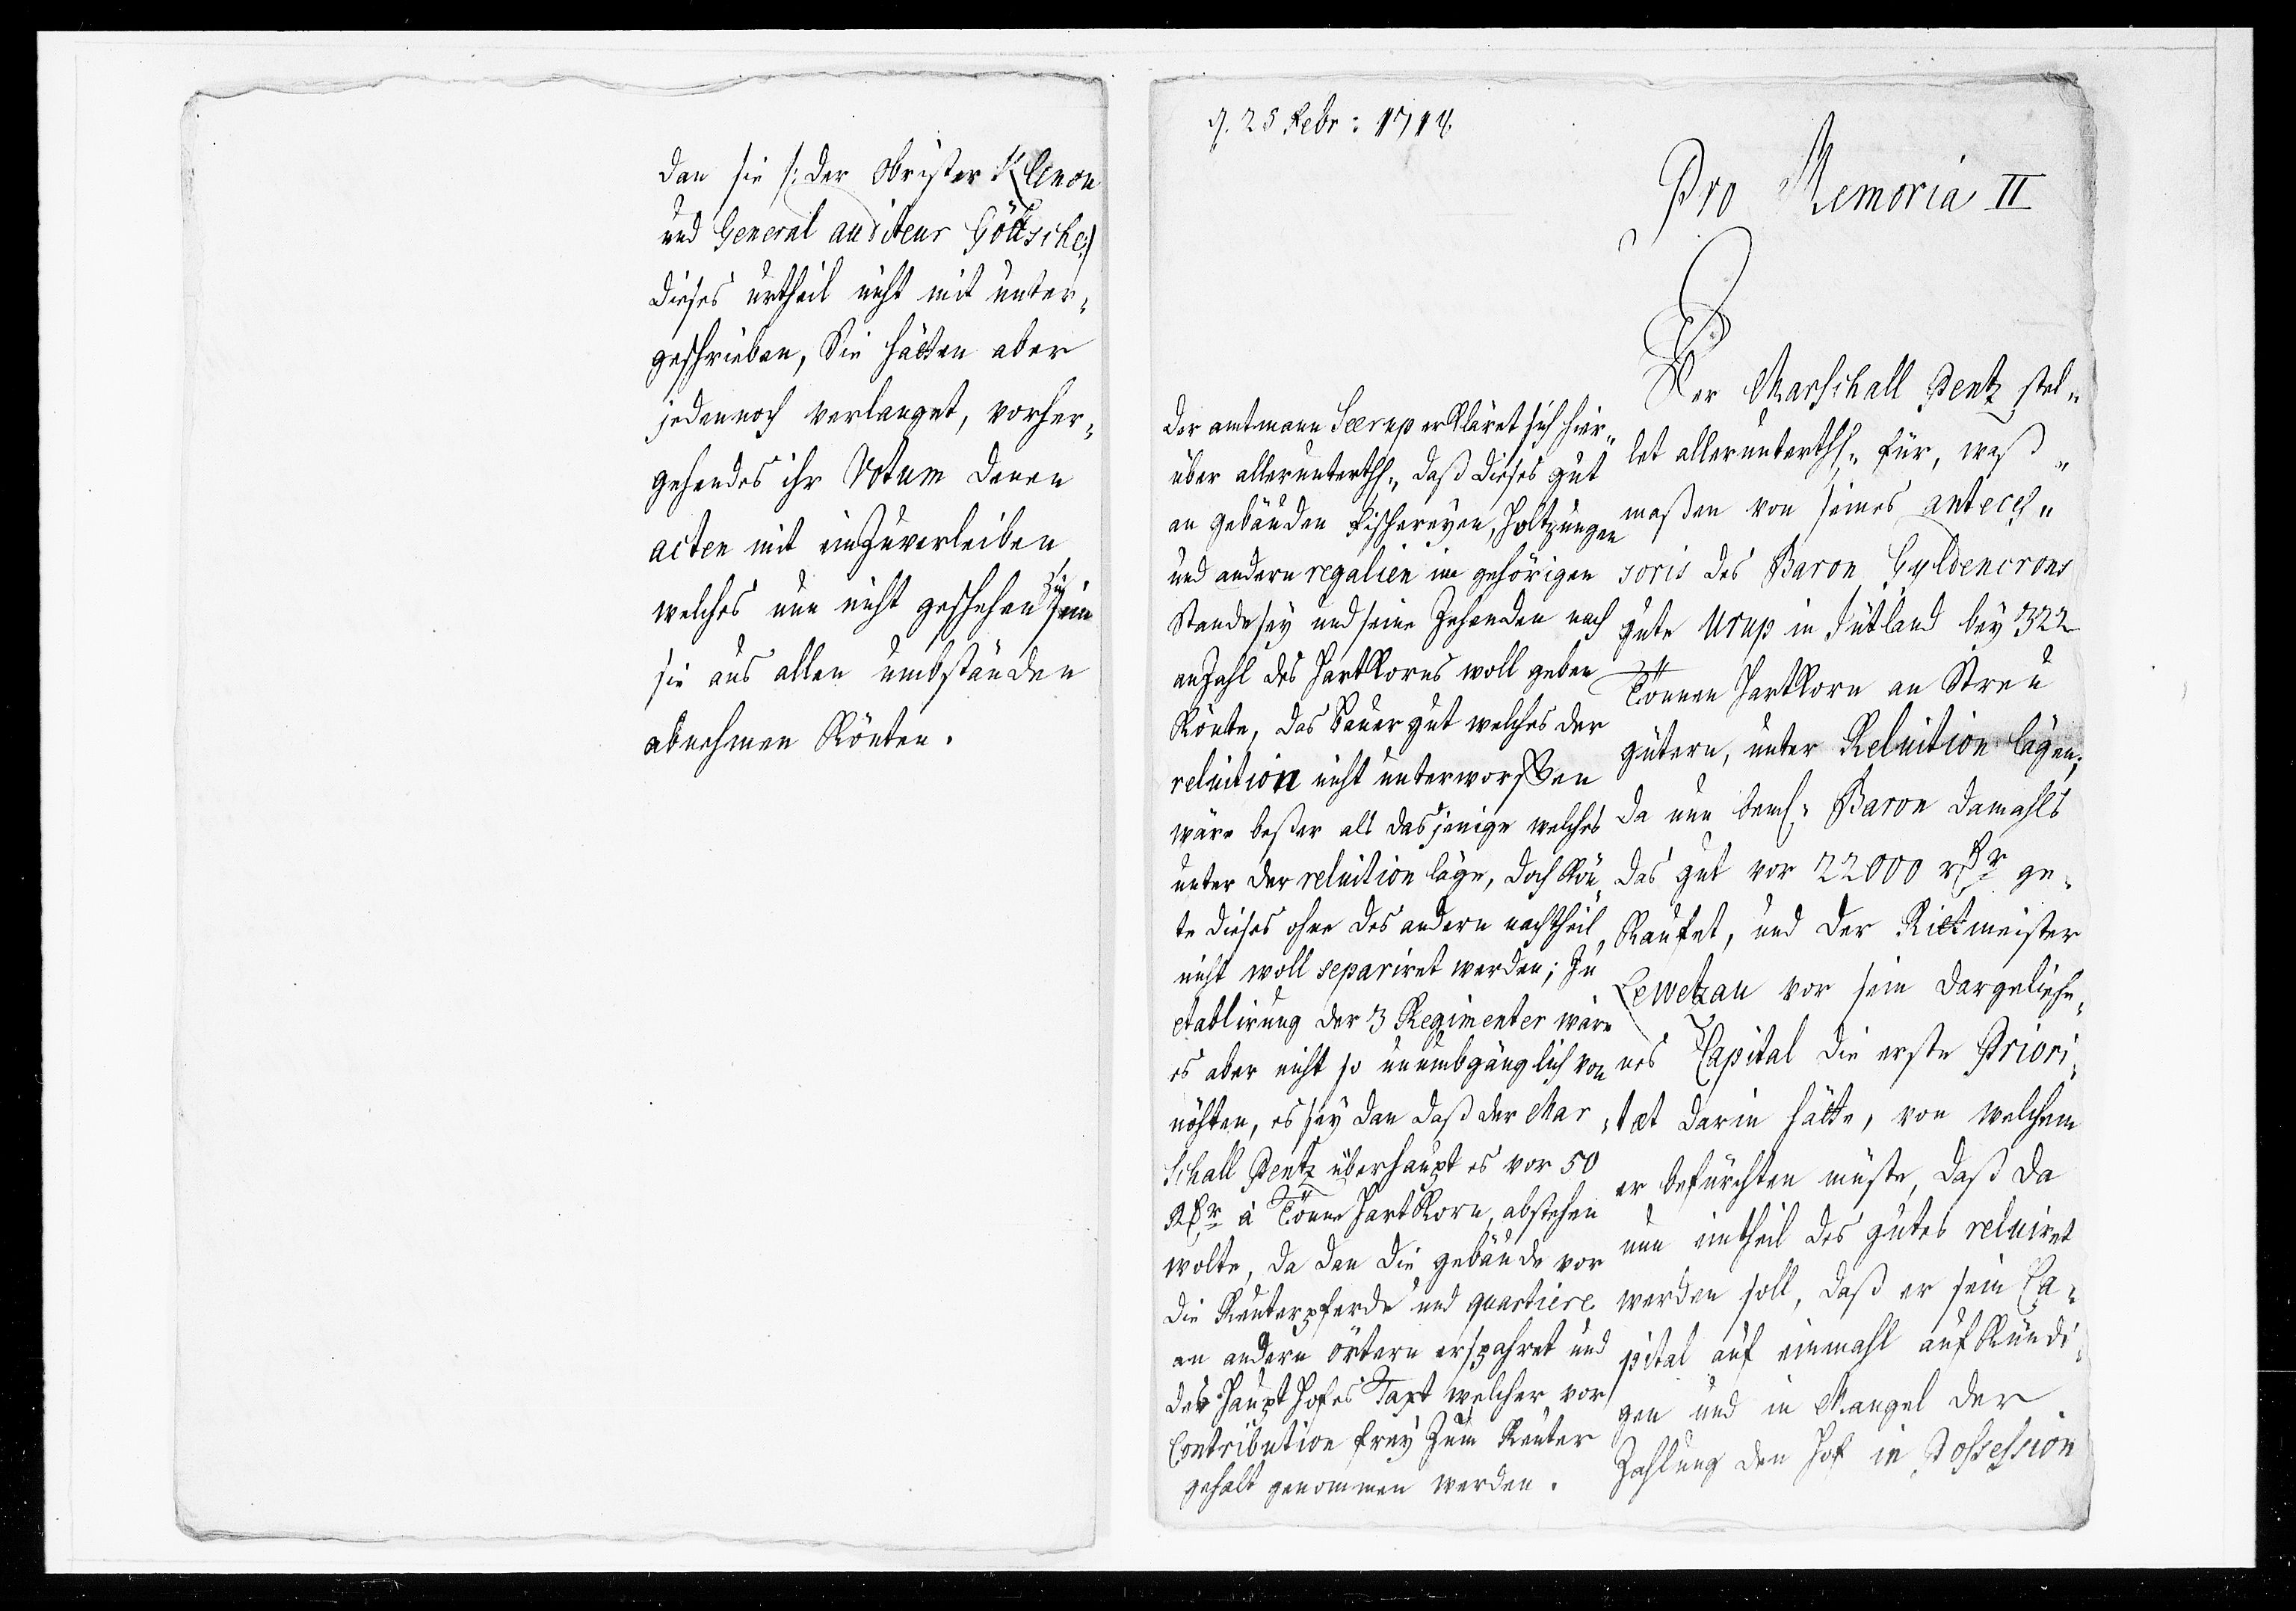 dan sie /: der Obrister Klenon
und General auditeur Göttsche :/
dieses urtheil nicht mit unter„
geschrieben, Sie hätten aber
jedennoch verlanget, vorher„
gehendes ihr Votum denen
acten mit einzuverleiben
welches nun nicht geschehen sein
sie aus allen umbständen
abnehmen könten.
d. 25 Febr: 1714
Pro Memoria II
Der Marschall Pentz stel„
let allerunterth„ für, waß„
maßen von seines antecess„
soris des Baron Gyldencrons
gute Urup in Jütland bey 322
Tönnen Hartkorn an Streu
gütern, unter Reluition lägen;
da nun bem„ Baron damahls
das gut vor 22000 rthr ge„
kaufet, und der Rittmeister
Lewetzau vor sein dargeliehe„
nes Capital die erste Priori„
tæt darin hätte, von welchem
er befürchten müste, daß da
nun eintheil des gutes reluiret
werden soll, daß er sein Ca„
pital auf einmahl aufkündi„
gen und in Mangel der
Zahlung den Hof in Possession
Der amtmann Seerup erkläret sich hier„
über allerunterth„ daß dieses gut
an gebäuden fischereyen, Holtzungen
und andern regalien im gehörigen
Stande sey und seine Zehenden nach
anzahl des Hartkorns woll geben
könte, das bauer gut welches der
reluition nicht unterworffen
wäre beßer als dasjenige welches
unter der reluition läge, doch kön„
te dieses ohne des andern nachtheil
nicht woll separiret werden; Zu
etablirung der 3 Regimenter wäre
es aber nicht so unumbgänglich von
nöhten, es sey dan daß der Mar„
schall Pentz überhaupt es vor 50
Rthr à Tönne Hartkorn, abstehen
wolte, da dan die gebäude vor
die Reuterpferde und quartiere
an andern örtern erspahret und
des Haupt Hofes Taxt welcher vor
Contribution frey zum Reuter
gehalt genommen werden.